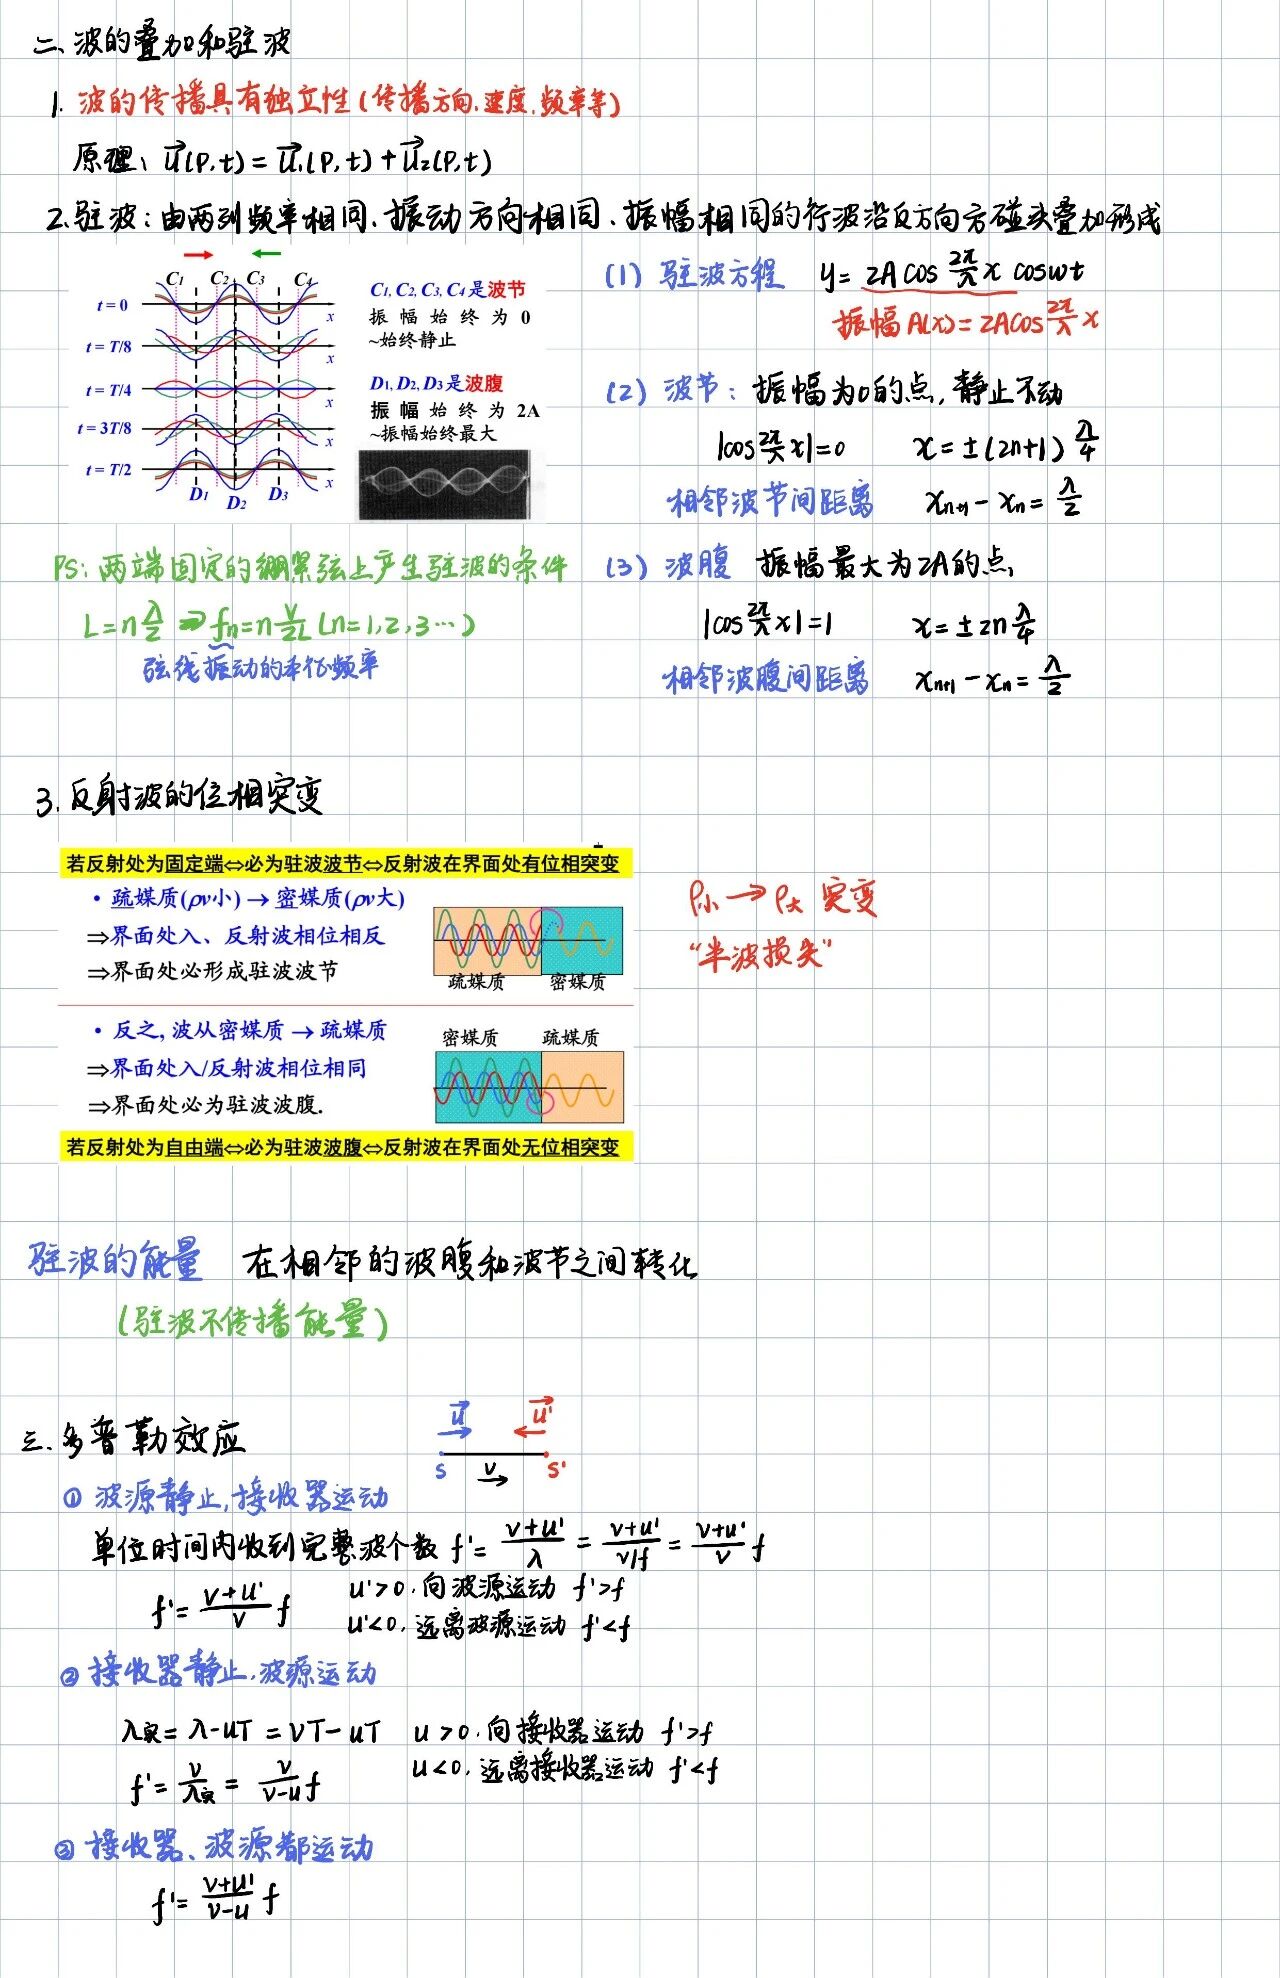 二、波的叠加和驻波
1. 波的传播具有独立性(传播方向、速度、频率等)
原理: u⃗(P,t) = u⃗₁(P,t) + u⃗₂(P,t)
2. 驻波: 由两列频率相同、振动方向相同、振幅相同的行波沿反方向碰头叠加形成
C1 C2 C3 C4
t = 0 x
t = T/8 x
t = T/4 x
t = 3T/8 x
t = T/2 x
D1 D2 D3
C1, C2, C3, C4 是波节
振幅始终为 0
~始终静止
D1, D2, D3 是波腹
振幅始终为 2A
~振幅始终最大
PS: 两端固定的绷紧弦上产生驻波的条件
L = n λ/2 ⇒ fn = n v/2L (n = 1, 2, 3 ⋯)
弦线振动的本征频率
(1) 驻波方程 y = 2A cos 2π/λ x cosωt
振幅 A(x) = 2A cos 2π/λ x
(2) 波节: 振幅为0的点, 静止不动
|cos 2π/λ x| = 0 x = ±(2n+1) λ/4
相邻波节间距离 xn+1 − xn = λ/2
(3) 波腹 振幅最大为2A的点,
|cos 2π/λ x| = 1 x = ±2n λ/4
相邻波腹间距离 xn+1 − xn = λ/2
3. 反射波的位相突变
若反射处为固定端⇔必为驻波波节⇔反射波在界面处有位相突变
• 疏媒质(ρv小) → 密媒质(ρv大)
⇒界面处入、反射波相位相反
⇒界面处必形成驻波波节
疏媒质 密媒质
ρ小 → ρ大 突变
“半波损失”
• 反之, 波从密媒质 → 疏媒质
⇒界面处入/反射波相位相同
⇒界面处必为驻波波腹.
密媒质 疏媒质
若反射处为自由端⇔必为驻波波腹⇔反射波在界面处无位相突变
驻波的能量 在相邻的波腹和波节之间转化
(驻波不传播能量)
三、多普勒效应
u⃗ u⃗'
S v S'
① 波源静止, 接收器运动
单位时间内收到完整波个数 f' = (v+u')/λ = (v+u')/(v/f) = (v+u')/v f
f' = (v+u')/v f u'>0, 向波源运动 f'>f
u'<0, 远离波源运动 f'<f
② 接收器静止, 波源运动
λ实 = λ − uT = vT − uT u>0, 向接收器运动 f'>f
f' = v/λ实 = v/(v−u) f u<0, 远离接收器运动 f'<f
③ 接收器、波源都运动
f' = (v+u')/(v−u) f